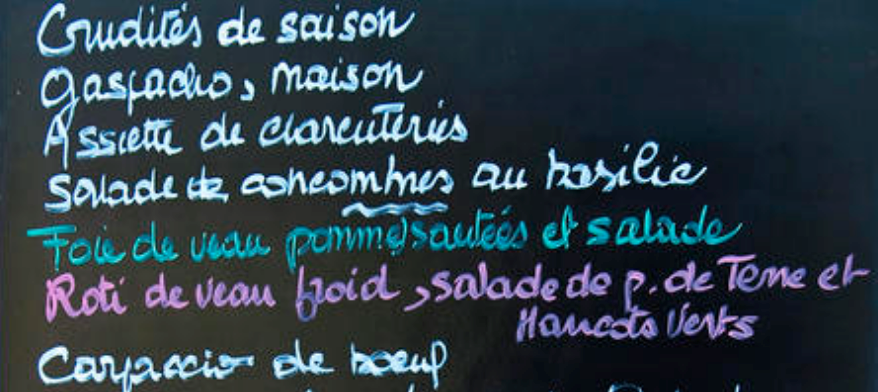 Crudités de saison
Gaspacho, maison
Assiette de charcuteries
Salade de concombres au basilic
Foie de veau pommes sautées et salade
Roti de veau froid, salade de p. de Terre et
Haricots Verts
Carpaccio de boeuf